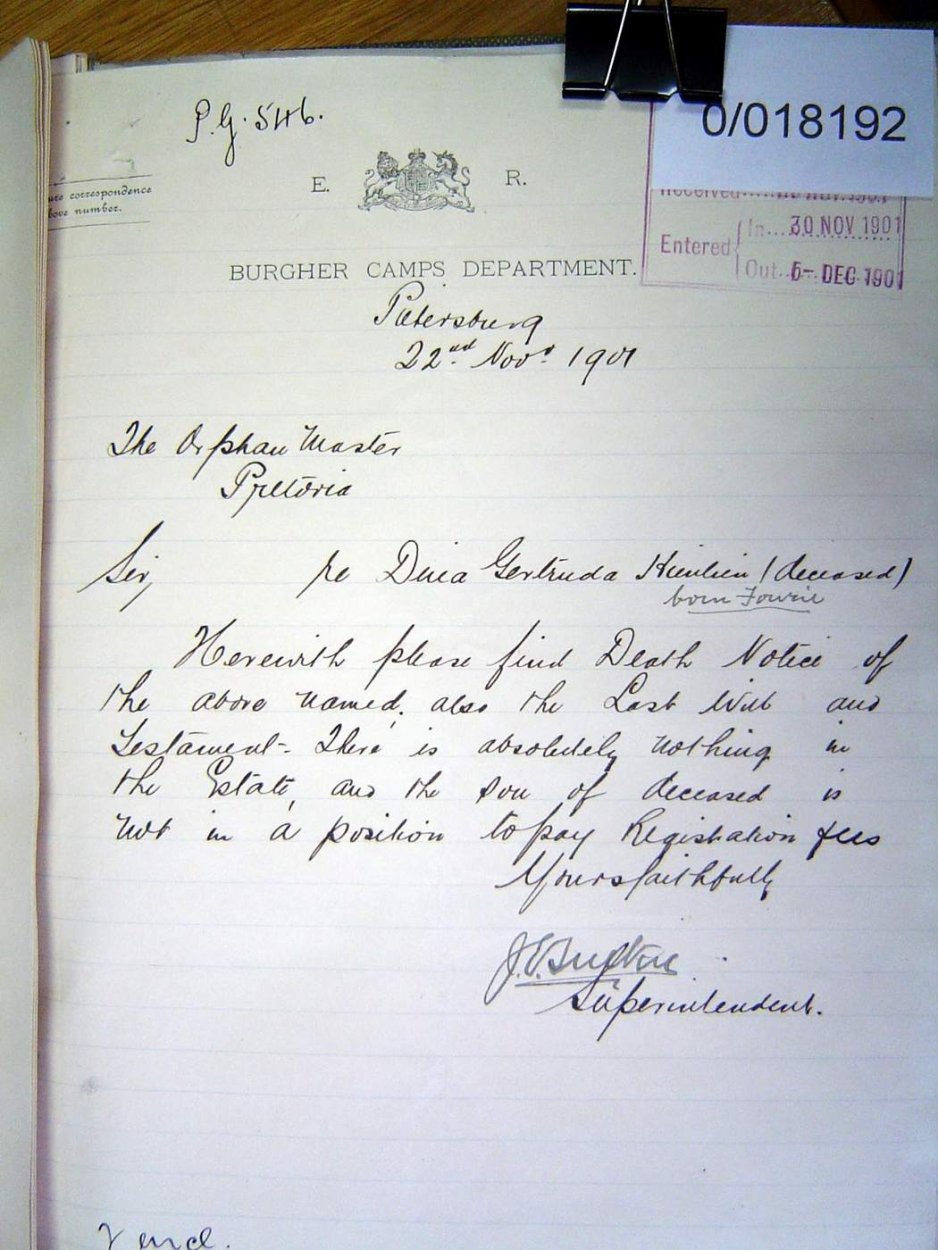 P.G. 546.
0/018192
correspondence
number.
E. R.
Received
Entered In... 30 NOV 1901
Out.. 5- DEC 1901
BURGHER CAMPS DEPARTMENT.
Pietersburg
22nd Novr 1901
The Orphan Master
Pretoria
Sir, re Dina Gertruda (deceased)
born Fourie
Herewith please find Death Notice of
the above named, also the Last Will and
Testament. There is absolutely nothing in
the Estate, and the son of deceased is
not in a position to pay Registration fees
Yours faithfully
Superintendent.
encl.